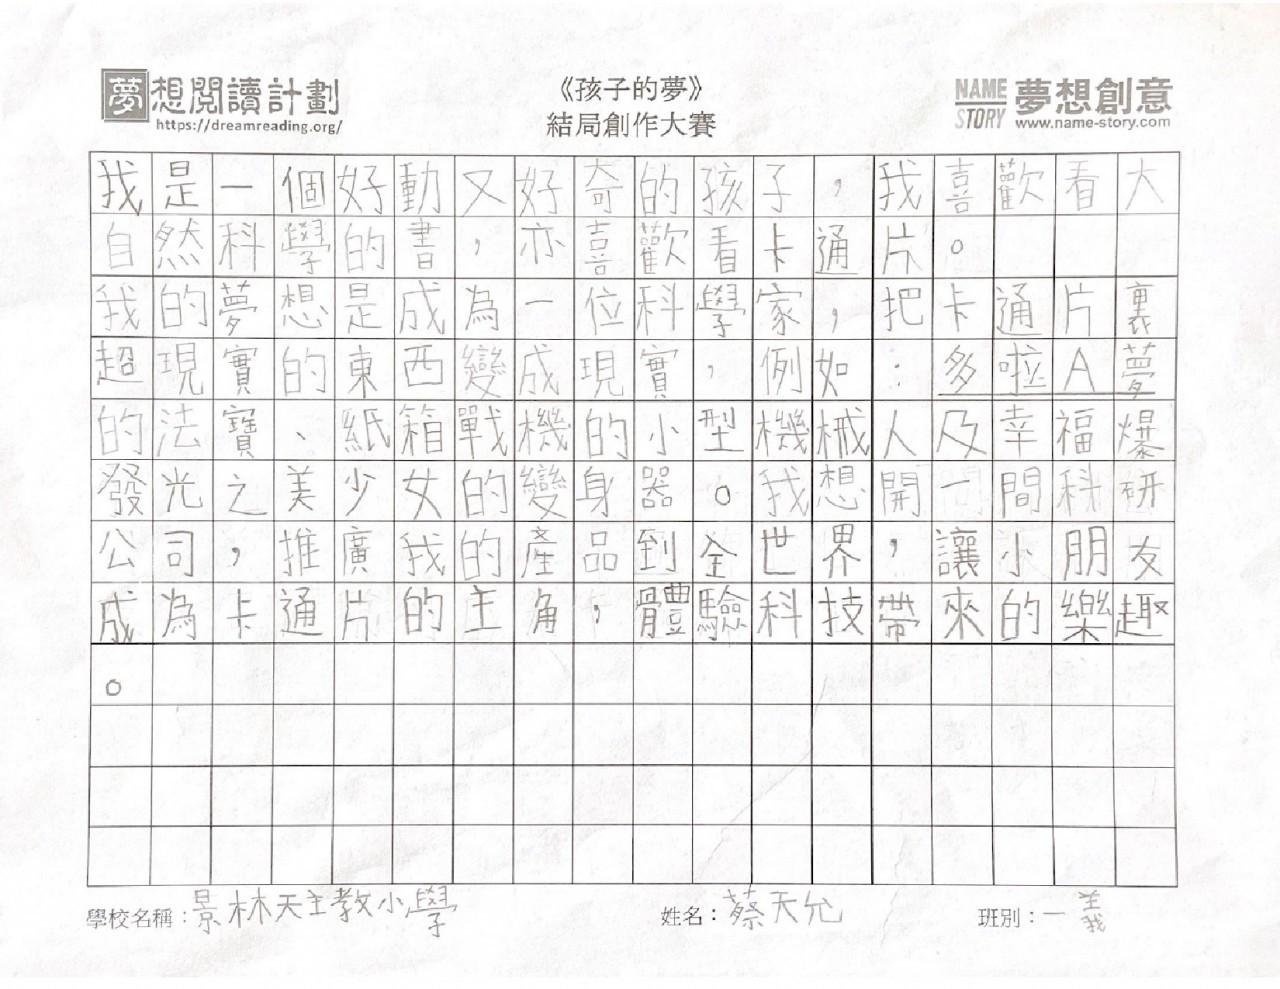 夢想閱讀計劃
https://dreamreading.org/
《孩子的夢》
結局創作大賽
NAME STORY 夢想創意
www.name-story.com
我是一個好動又好奇的孩子，我喜歡看大
自然科學的書，亦喜歡看卡通片。
我的夢想是成為一位科學家，把卡通片裏
超現實的東西變成現實，例如：多啦A夢
的法寶、紙箱戰機的小型機械人及幸福爆
發光之美少女的變身器。我想開一間科研
公司，推廣我的產品到全世界，讓小朋友
成為卡通片的主角，體驗科技帶來的樂趣
。
學校名稱：景林天主教小學 姓名：蔡天允 班別：一義